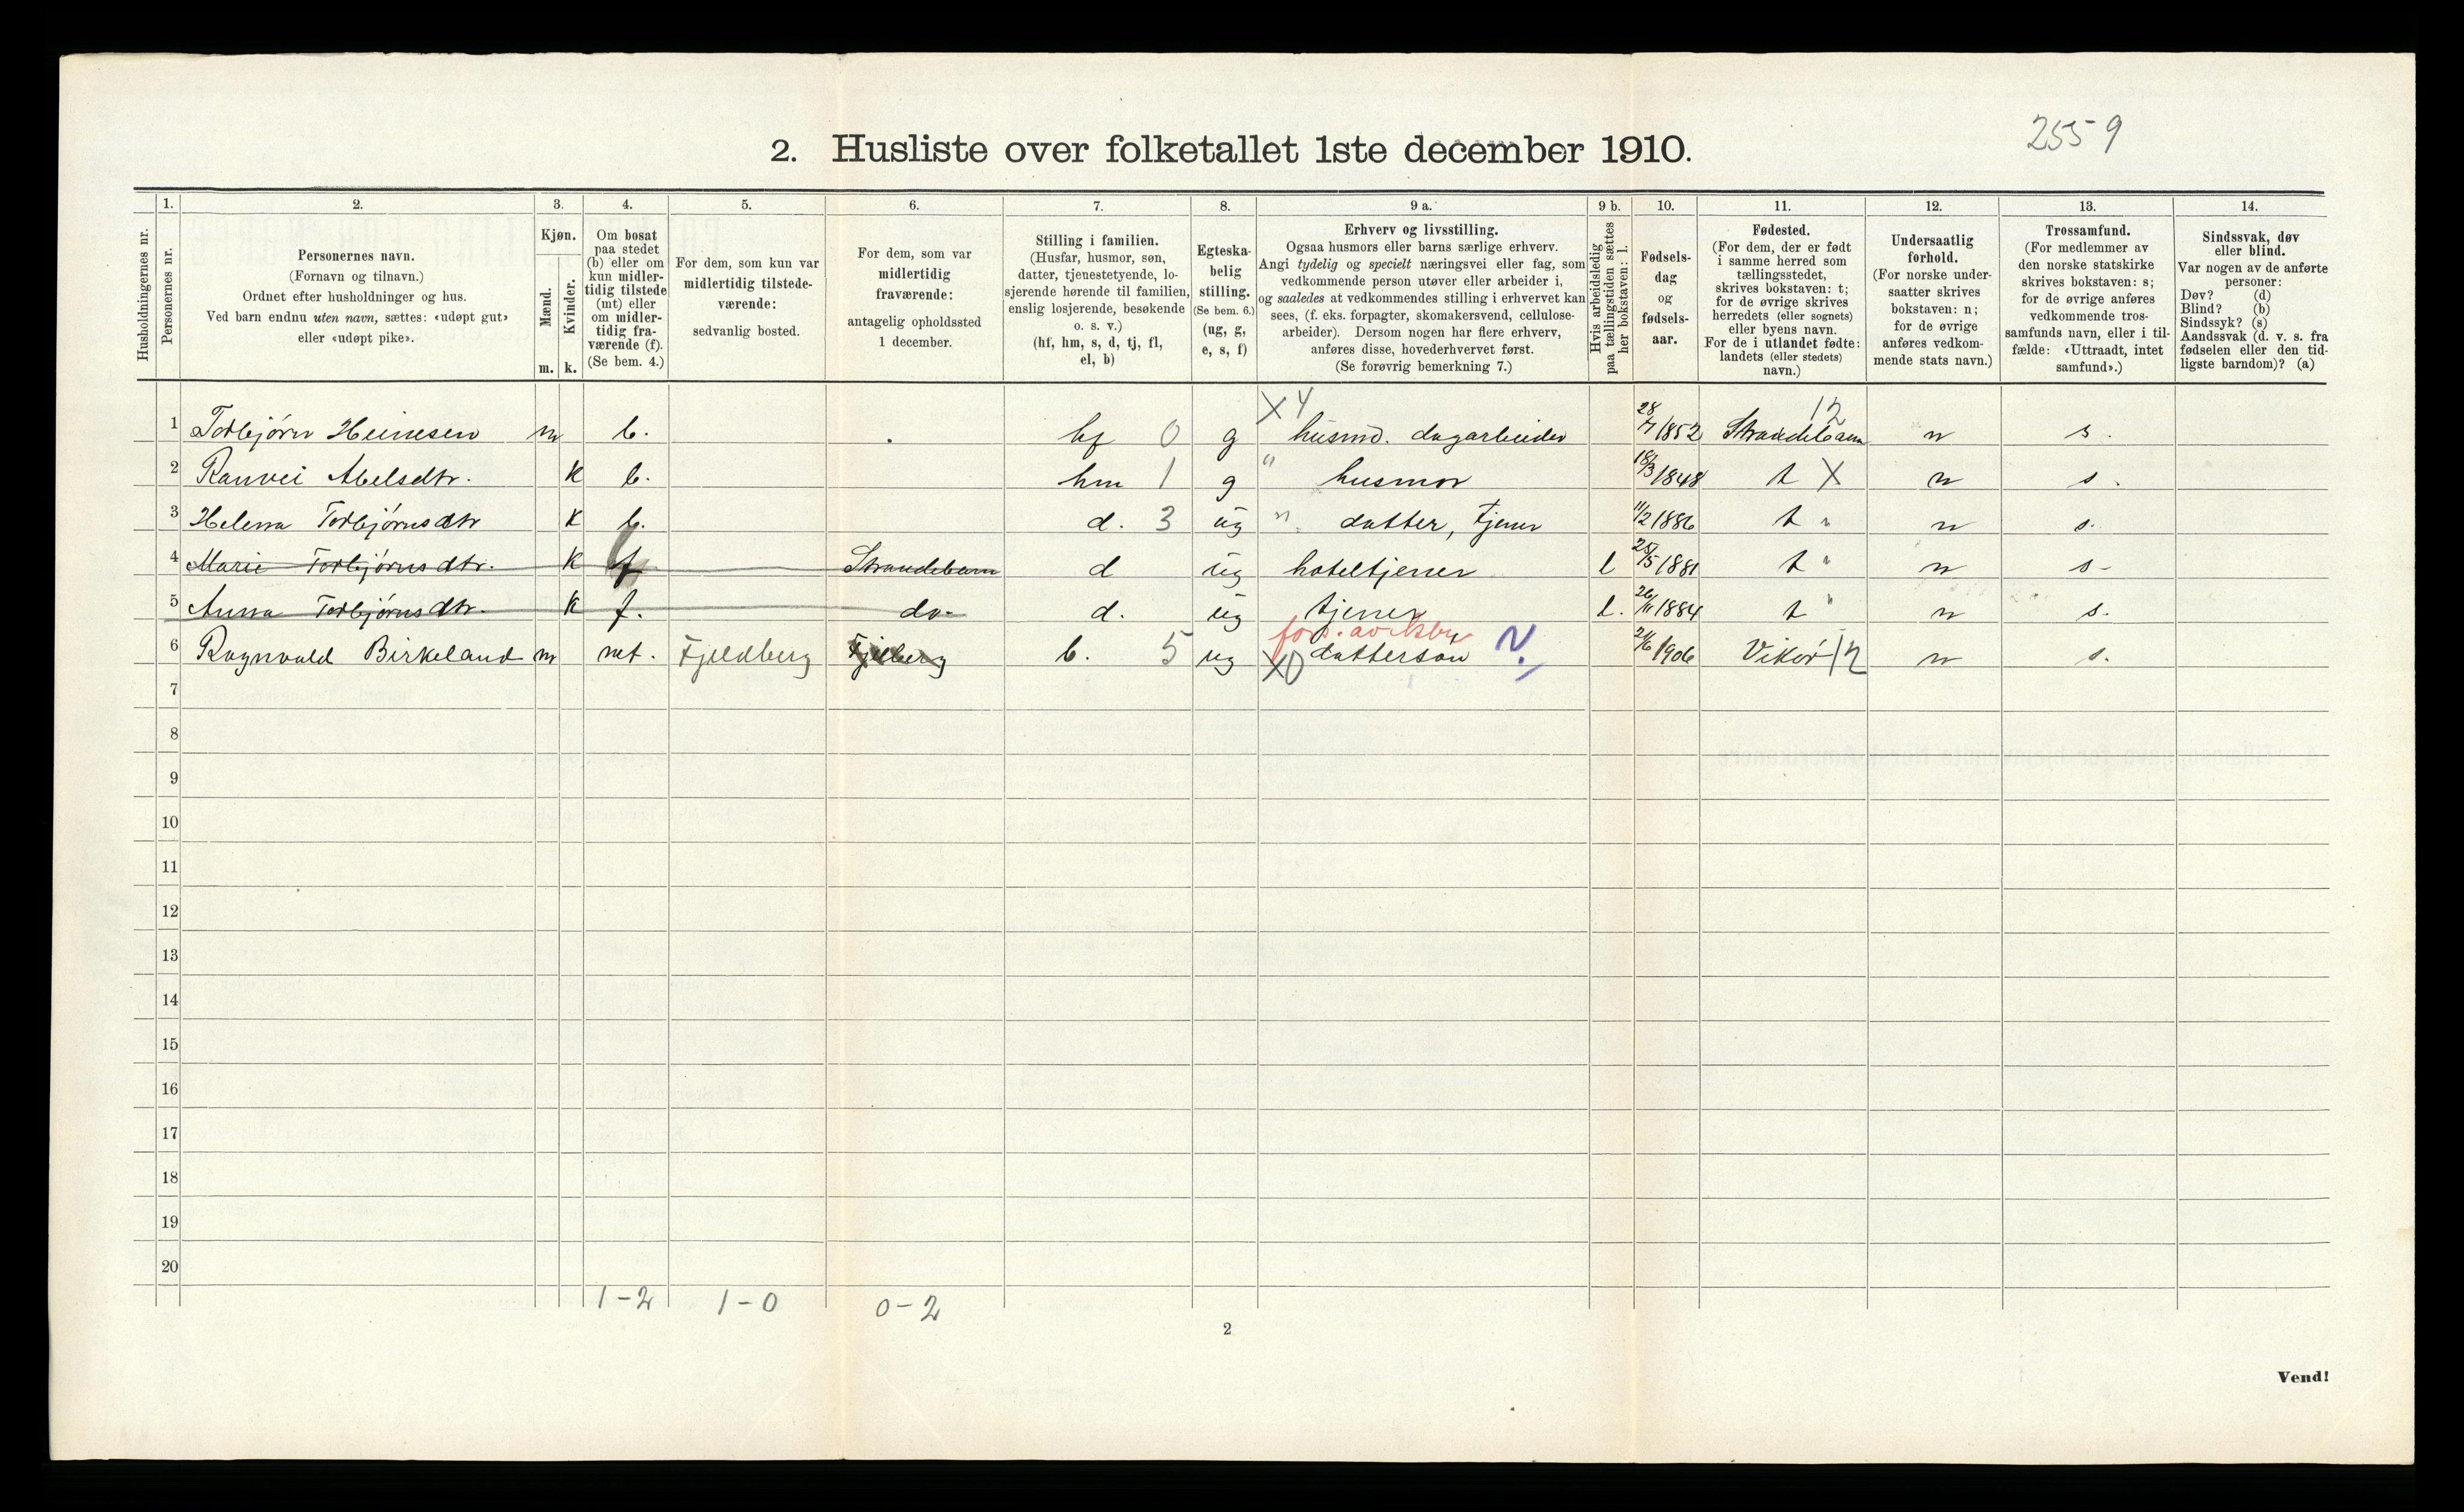 2559
2. Husliste over folketallet 1ste december 1910.
Husholdningernes nr.
1. Personernes nr.
2. Personernes navn.
(Fornavn og tilnavn.)
Ordnet efter husholdninger og hus.
Ved barn endnu uten navn, sættes: «udøpt gut»
eller «udøpt pike».
3. Kjøn.
Mænd. m.
Kvinder. k.
4. Om bosat
paa stedet
(b) eller om
kun midler-
tidig tilstede
(mt) eller
om midler-
tidig fra-
værende (f).
(Se bem. 4.)
5. For dem, som kun var
midlertidig tilstede-
værende:
sedvanlig bosted.
6. For dem, som var
midlertidig
fraværende:
antagelig opholdssted
1 december.
7. Stilling i familien.
(Husfar, husmor, søn,
datter, tjenestetyende, lo-
sjerende hørende til familien,
enslig losjerende, besøkende
o. s. v.)
(hf, hm, s, d, tj, fl,
el, b)
8. Egteska-
belig
stilling.
(Se bem. 6.)
(ug, g,
e, s, f)
9 a. Erhverv og livsstilling.
Ogsaa husmors eller barns særlige erhverv.
Angi tydelig og specielt næringsvei eller fag, som
vedkommende person utøver eller arbeider i,
og saaledes at vedkommendes stilling i erhvervet kan
sees, (f. eks. forpagter, skomakersvend, cellulose-
arbeider). Dersom nogen har flere erhverv,
anføres disse, hovederhvervet først.
(Se forøvrig bemerkning 7.)
9 b. Hvis arbeidsledig
paa tællingstiden sættes
her bokstaven: l.
10. Fødsels-
dag
og
fødsels-
aar.
11. Fødested.
(For dem, der er født
i samme herred som
tællingsstedet,
skrives bokstaven: t;
for de øvrige skrives
herredets (eller sognets)
eller byens navn.
For de i utlandet fødte:
landets (eller stedets)
navn.)
12. Undersaatlig
forhold.
(For norske under-
saatter skrives
bokstaven: n;
for de øvrige
anføres vedkom-
mende stats navn.)
13. Trossamfund.
(For medlemmer av
den norske statskirke
skrives bokstaven: s;
for de øvrige anføres
vedkommende tros-
samfunds navn, eller i til-
fælde: «Uttraadt, intet
samfund».)
14. Sindssvak, døv
eller blind.
Var nogen av de anførte
personer:
Døv? (d)
Blind? (b)
Sindssyk? (s)
Aandssvak (d. v. s. fra
fødselen eller den tid-
ligste barndom)? (a)
X 4 12
1 Torbjørn Heinesen m b. hf 0 g husmd. dagarbeider 28/7 1852 Strandebarm n s.
2 Ranvei Abelsdtr. K b. hm 1 g " husmor 18/3 1848 t X n s.
3 Helena Torbjørnsdtr K b. d. 3 ug " datter, tjener 11/2 1886 t " n s.
4 Marie Torbjørnsdtr. K f Strandebarm d ug hoteltjener l 25/5 1881 t " n s
5 Anna Torbjørnsdtr. K f. do d. ug tjener l. 26/11 1884 t " n s.
6 Ragnvald Birkeland m mt. Fjeldberg Fjelberg b. 5 ug X0 datterson N. 24/6 1906 Vikør 12 n s.
7
8
9
10
11
12
13
14
15
16
17
18
19
20
1-2 1-0 0-2
2
Vend!